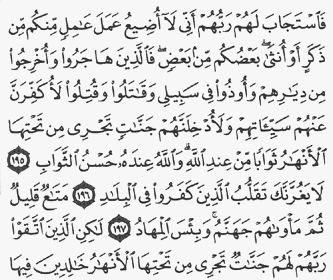 فَٱسْتَجَابَ لَهُمْ رَبُّهُمْ أَنِّي لَآ أُضِيعُ عَمَلَ عَٰمِلٍ مِّنكُم مِّن
ذَكَرٍ أَوْ أُنثَىٰۖ بَعْضُكُم مِّنۢ بَعْضٖۖ فَٱلَّذِينَ هَاجَرُوا۟ وَأُخْرِجُوا۟
مِن دِيَٰرِهِمْ وَأُوذُوا۟ فِي سَبِيلِي وَقَٰتَلُوا۟ وَقُتِلُوا۟ لَأُكَفِّرَنَّ
عَنْهُمْ سَيِّـَٔاتِهِمْ وَلَأُدْخِلَنَّهُمْ جَنَّٰتٍ تَجْرِي مِن تَحْتِهَا
ٱلْأَنْهَٰرُ ثَوَابًا مِّنْ عِندِ ٱللَّهِۗ وَٱللَّهُ عِندَهُۥ حُسْنُ ٱلثَّوَابِ ١٩٥
لَا يَغُرَّنَّكَ تَقَلُّبُ ٱلَّذِينَ كَفَرُوا۟ فِي ٱلْبِلَٰدِ ١٩٦ مَتَٰعٌ قَلِيلٌ
ثُمَّ مَأْوَىٰهُمْ جَهَنَّمُۚ وَبِئْسَ ٱلْمِهَادُ ١٩٧ لَٰكِنِ ٱلَّذِينَ ٱتَّقَوْا۟
رَبَّهُمْ لَهُمْ جَنَّٰتٌ تَجْرِي مِن تَحْتِهَا ٱلْأَنْهَٰرُ خَٰلِدِينَ فِيهَا